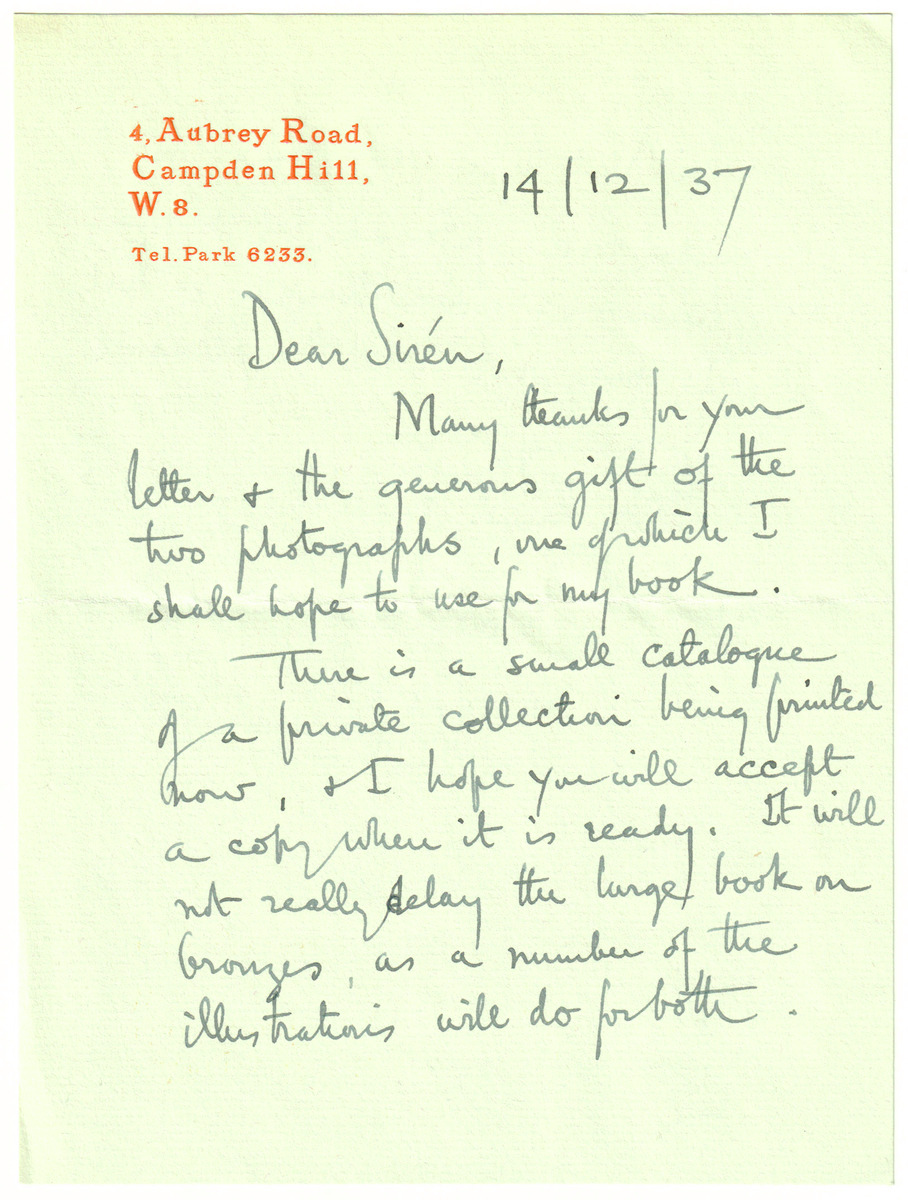 4, Aubrey Road,
Campden Hill,
W. 8.
Tel. Park 6233.
14/12/37
Dear Sirén,
Many thanks for your
letter & the generous gift of the
two photographs, one of which I
shall hope to use for my book.
There is a small catalogue
of a private collection being printed
now, & I hope you will accept
a copy when it is ready. It will
not really delay the large book on
bronzes, as a number of the
illustrations will do for both.